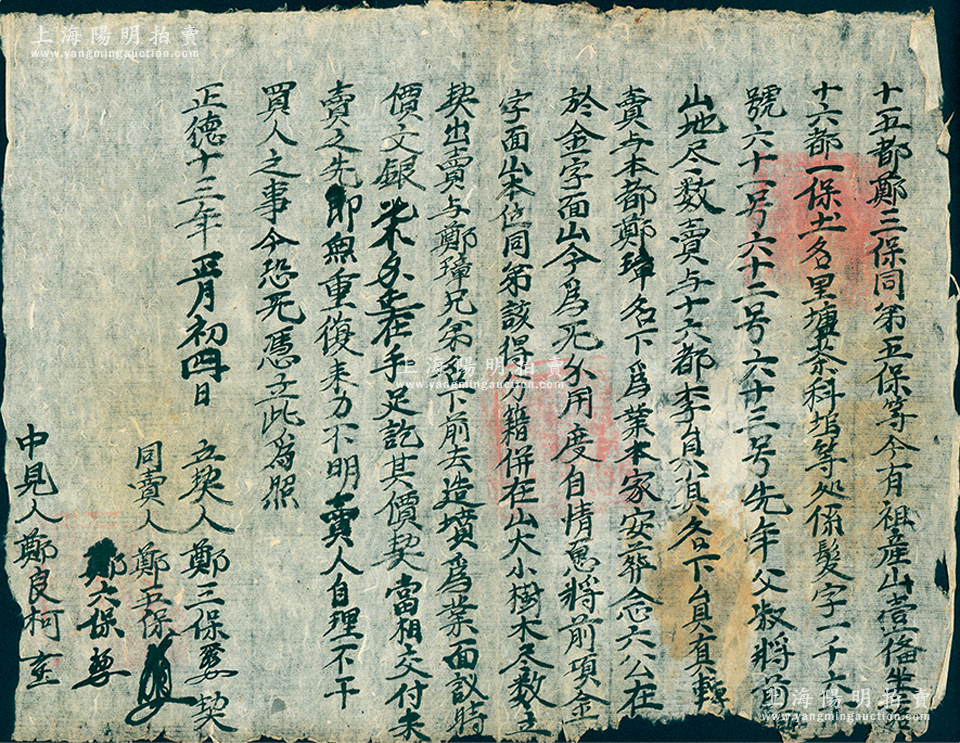 上海陽明拍賣
www.yangmingauction.com
十五都鄭三保同弟五保等今有祖産山壹俻坐落
十六都一保土名里塘茶科垉等処係髮字一千六
號六十一号六十二号六十三号先年父叔将前
山地尽数賣與十六都李貟名下貟真轉
賣与本都鄭璋名下為業本家安葬念六公在
於金字面山今為无分用度自情愿将前項金
字面山本位同弟該得分籍併在山大小樹木尽数立
契出賣与鄭璋兄弟名下前去造墳為業面议時
價文銀柒錢正在手足訖其價契當相交付未
賣之先即無重復来力不明賣人自理不干
買人之事今恐无憑立此為照
正德十三年正月初四日
立契人鄭三保 契
同賣人鄭五保
鄭六保
中見人鄭良柯
上海陽明拍賣
www.yangmingauction.com
上海陽明拍賣
www.yangmingauction.com